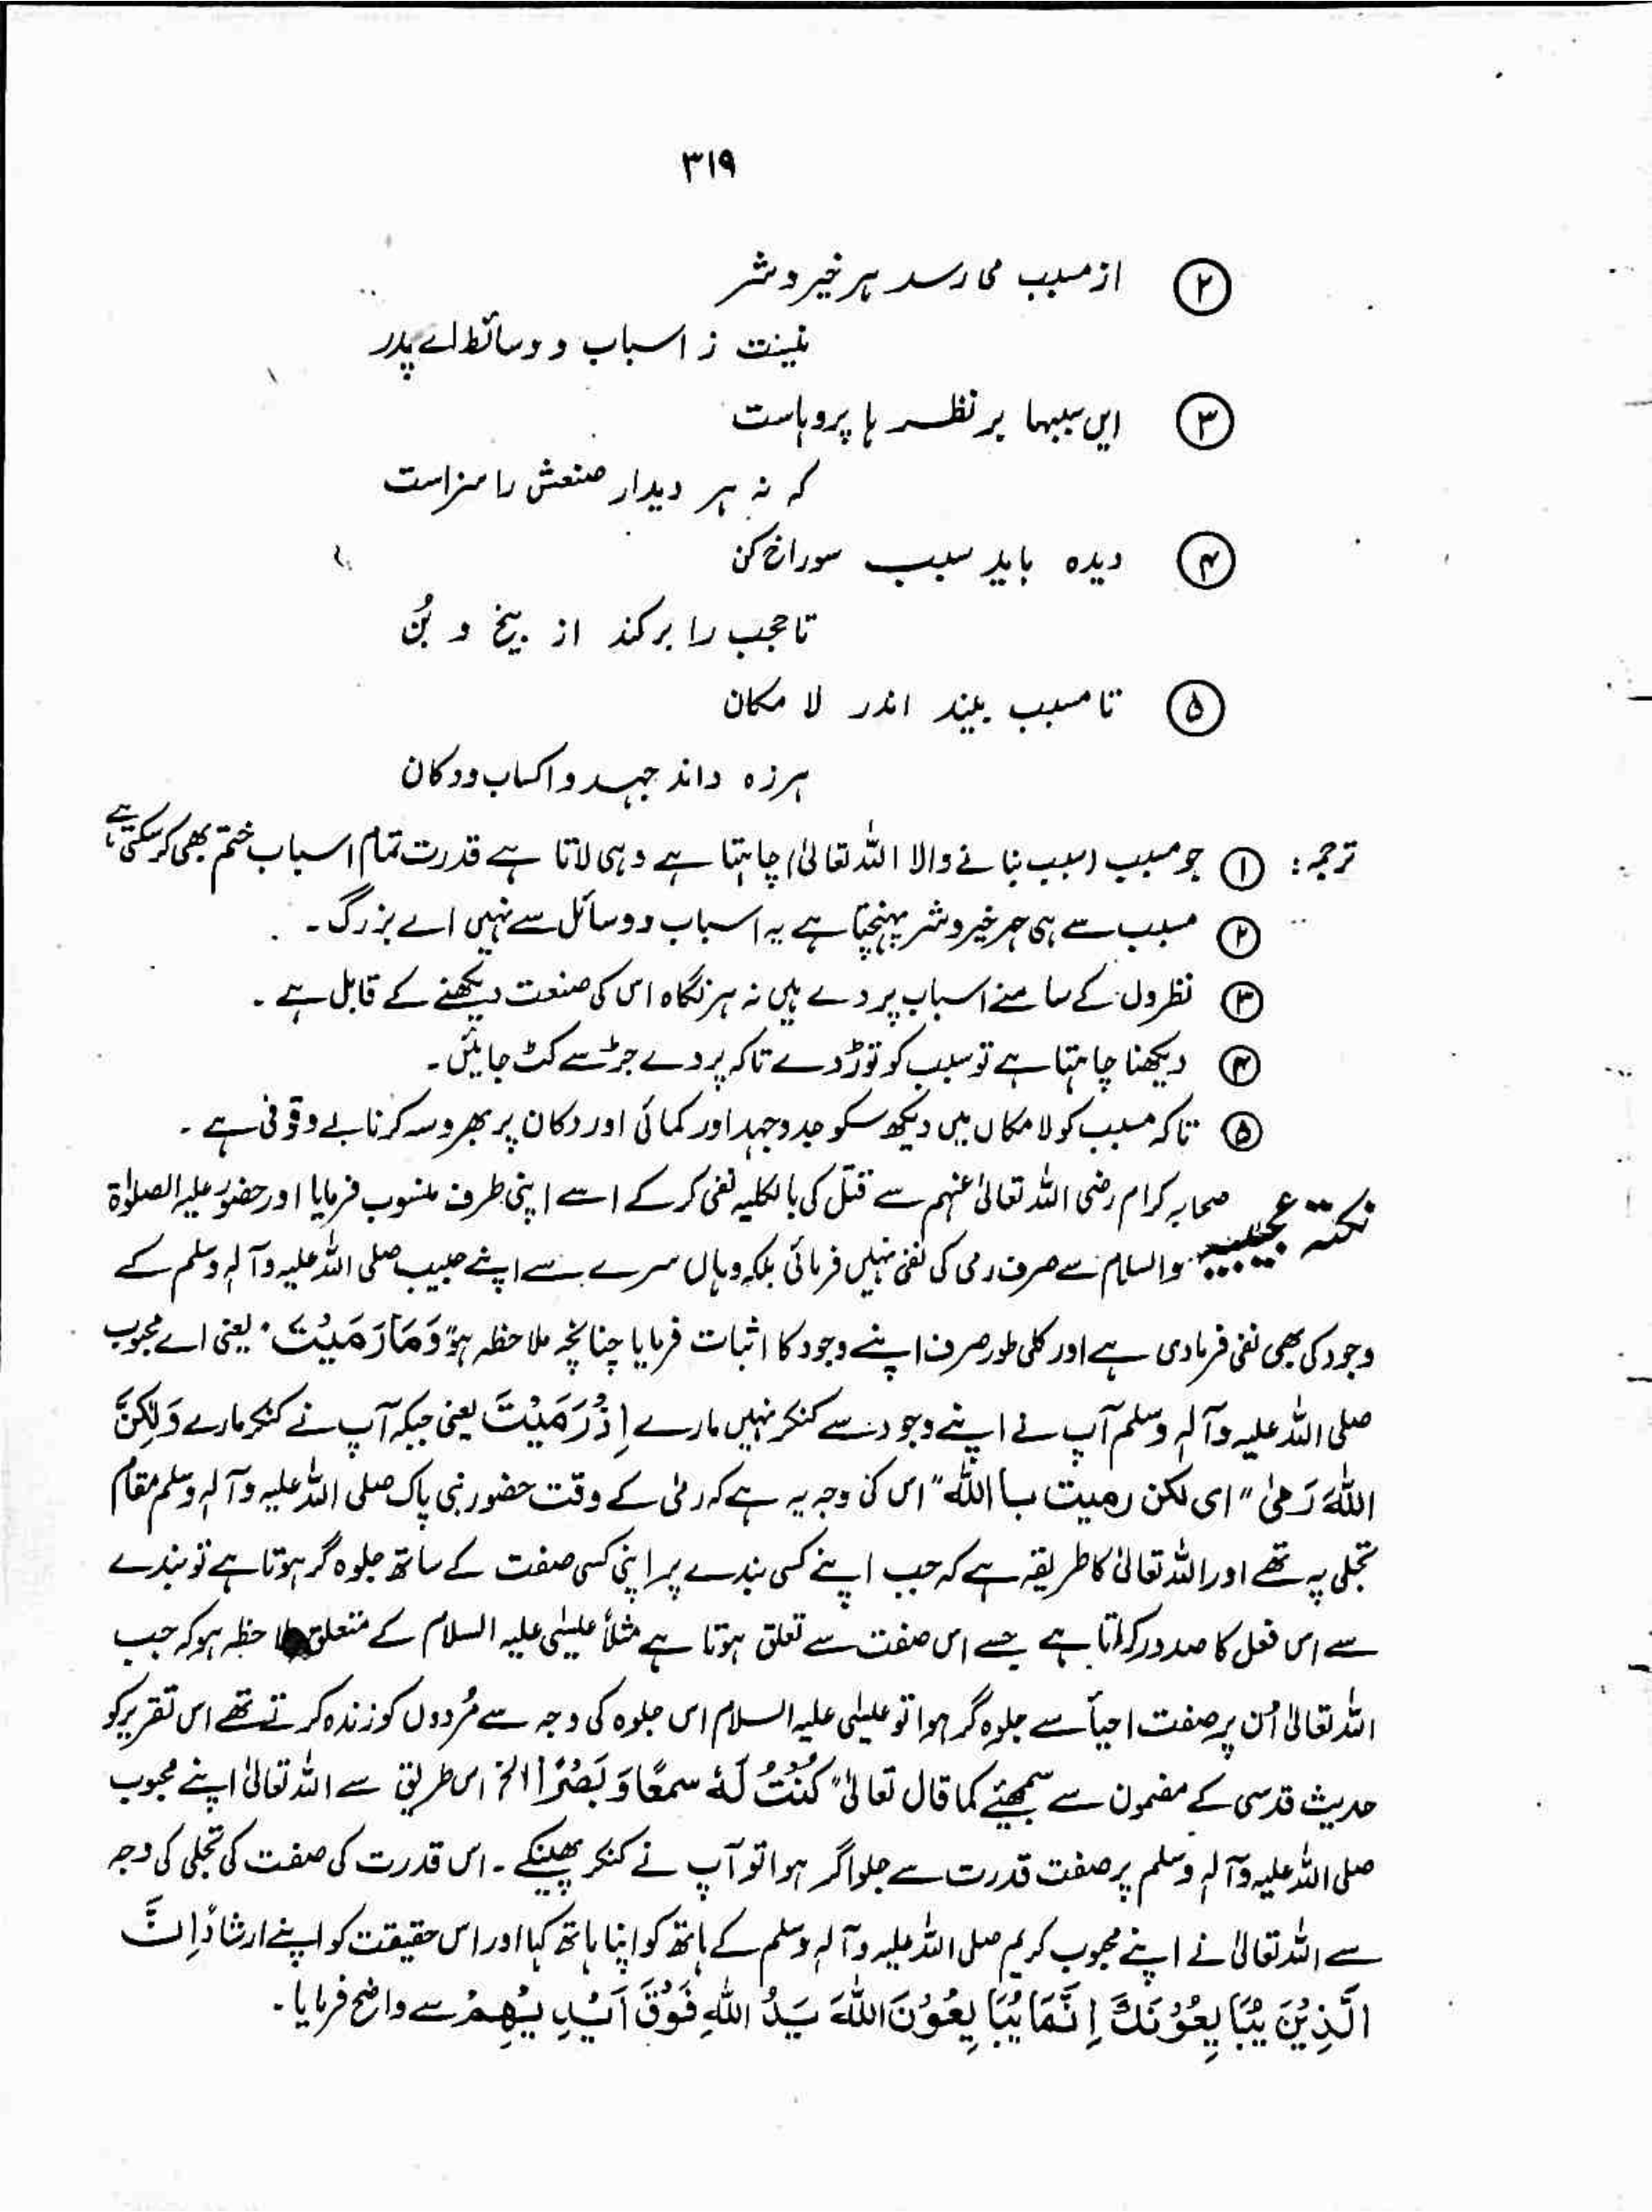 ۳۱۹
② از مسبب می رسد ہر خیر و شر
نیست ز اسباب و وسائط اے پدر
③ ایں سببہا بر نظر ہا پردہاست
کہ نہ ہر دیدار صنعش را سزاست
④ دیدہ باید سبب سوراخ کن
تا حجب را برکند از بیخ و بُن
⑤ تا مسبب بیند اندر لا مکان
ہرزہ داند جہد و اکساب و دکان
ترجمہ: ① جو مسبب (سبب بنانے والا اللہ تعالیٰ) چاہتا ہے وہی لاتا ہے قدرت تمام اسباب ختم بھی کر سکتی ہے
② مسبب سے ہی ہر خیر و شر پہنچتا ہے یہ اسباب و وسائل سے نہیں اے بزرگ۔
③ نظروں کے سامنے اسباب پردے ہیں نہ ہر نگاہ اس کی صنعت دیکھنے کے قابل ہے۔
④ دیکھنا چاہتا ہے تو سبب کو توڑ دے تاکہ پردے جڑ سے کٹ جائیں۔
⑤ تاکہ مسبب کو لا مکاں میں دیکھ سکو جدوجہد اور کمائی اور دکان پر بھروسہ کرنا بے وقوفی ہے۔
نکتہ عجیبہ صحابہ کرام رضی اللہ تعالیٰ عنہم سے قتل کی بالکلیہ نفی کر کے اسے اپنی طرف منسوب فرمایا اور حضور علیہ الصلوٰۃ
والسلام سے صرف رمی کی نفی نہیں فرمائی بلکہ وہاں سرے سے اپنے حبیب صلی اللہ علیہ وآلہٖ وسلم کے
وجود کی بھی نفی فرمادی ہے اور کلی طور صرف اپنے وجود کا اثبات فرمایا چنانچہ ملاحظہ ہو "وَمَا رَمَيْتَ" یعنی اے محبوب
صلی اللہ علیہ وآلہٖ وسلم آپ نے اپنے وجود سے کنکر نہیں مارے اِذْ رَمَيْتَ یعنی جبکہ آپ نے کنکر مارے وَلٰكِنَّ
اللّٰهَ رَمٰى "ای لکن رمیت باللّٰه" اس کی وجہ یہ ہے کہ رمی کے وقت حضور نبی پاک صلی اللہ علیہ وآلہٖ وسلم مقام
تجلی پہ تھے اور اللہ تعالیٰ کا طریقہ ہے کہ جب اپنے کسی بندے پر اپنی کسی صفت کے ساتھ جلوہ گر ہوتا ہے تو بندے
سے اس فعل کا صدور کراتا ہے جسے اس صفت سے تعلق ہوتا ہے مثلاً عیسٰی علیہ السلام کے متعلق ملاحظہ ہو کہ جب
اللہ تعالیٰ اُن پر صفت احیأ سے جلوہ گر ہوا تو عیسٰی علیہ السلام اس جلوہ کی وجہ سے مُردوں کو زندہ کرتے تھے اس تقریر کو
حدیث قدسی کے مضمون سے سمجھئے کما قال تعالیٰ "كُنْتُ لَهٗ سمعًا وَبَصُرًا" الخ اس طریق سے اللہ تعالیٰ اپنے محبوب
صلی اللہ علیہ وآلہٖ وسلم پر صفت قدرت سے جلوا گر ہوا تو آپ نے کنکر پھینکے۔ اس قدرت کی صفت کی تجلی کی وجہ
سے اللہ تعالیٰ نے اپنے محبوب کریم صلی اللہ علیہ وآلہٖ وسلم کے ہاتھ کو اپنا ہاتھ کہا اور اس حقیقت کو اپنے ارشاد اِنَّ
الَّذِيْنَ يُبَايِعُوْنَكَ اِنَّمَا يُبَايِعُوْنَ اللّٰهَ يَدُ اللّٰهِ فَوْقَ اَيْدِيْهِمْ سے واضح فرمایا۔